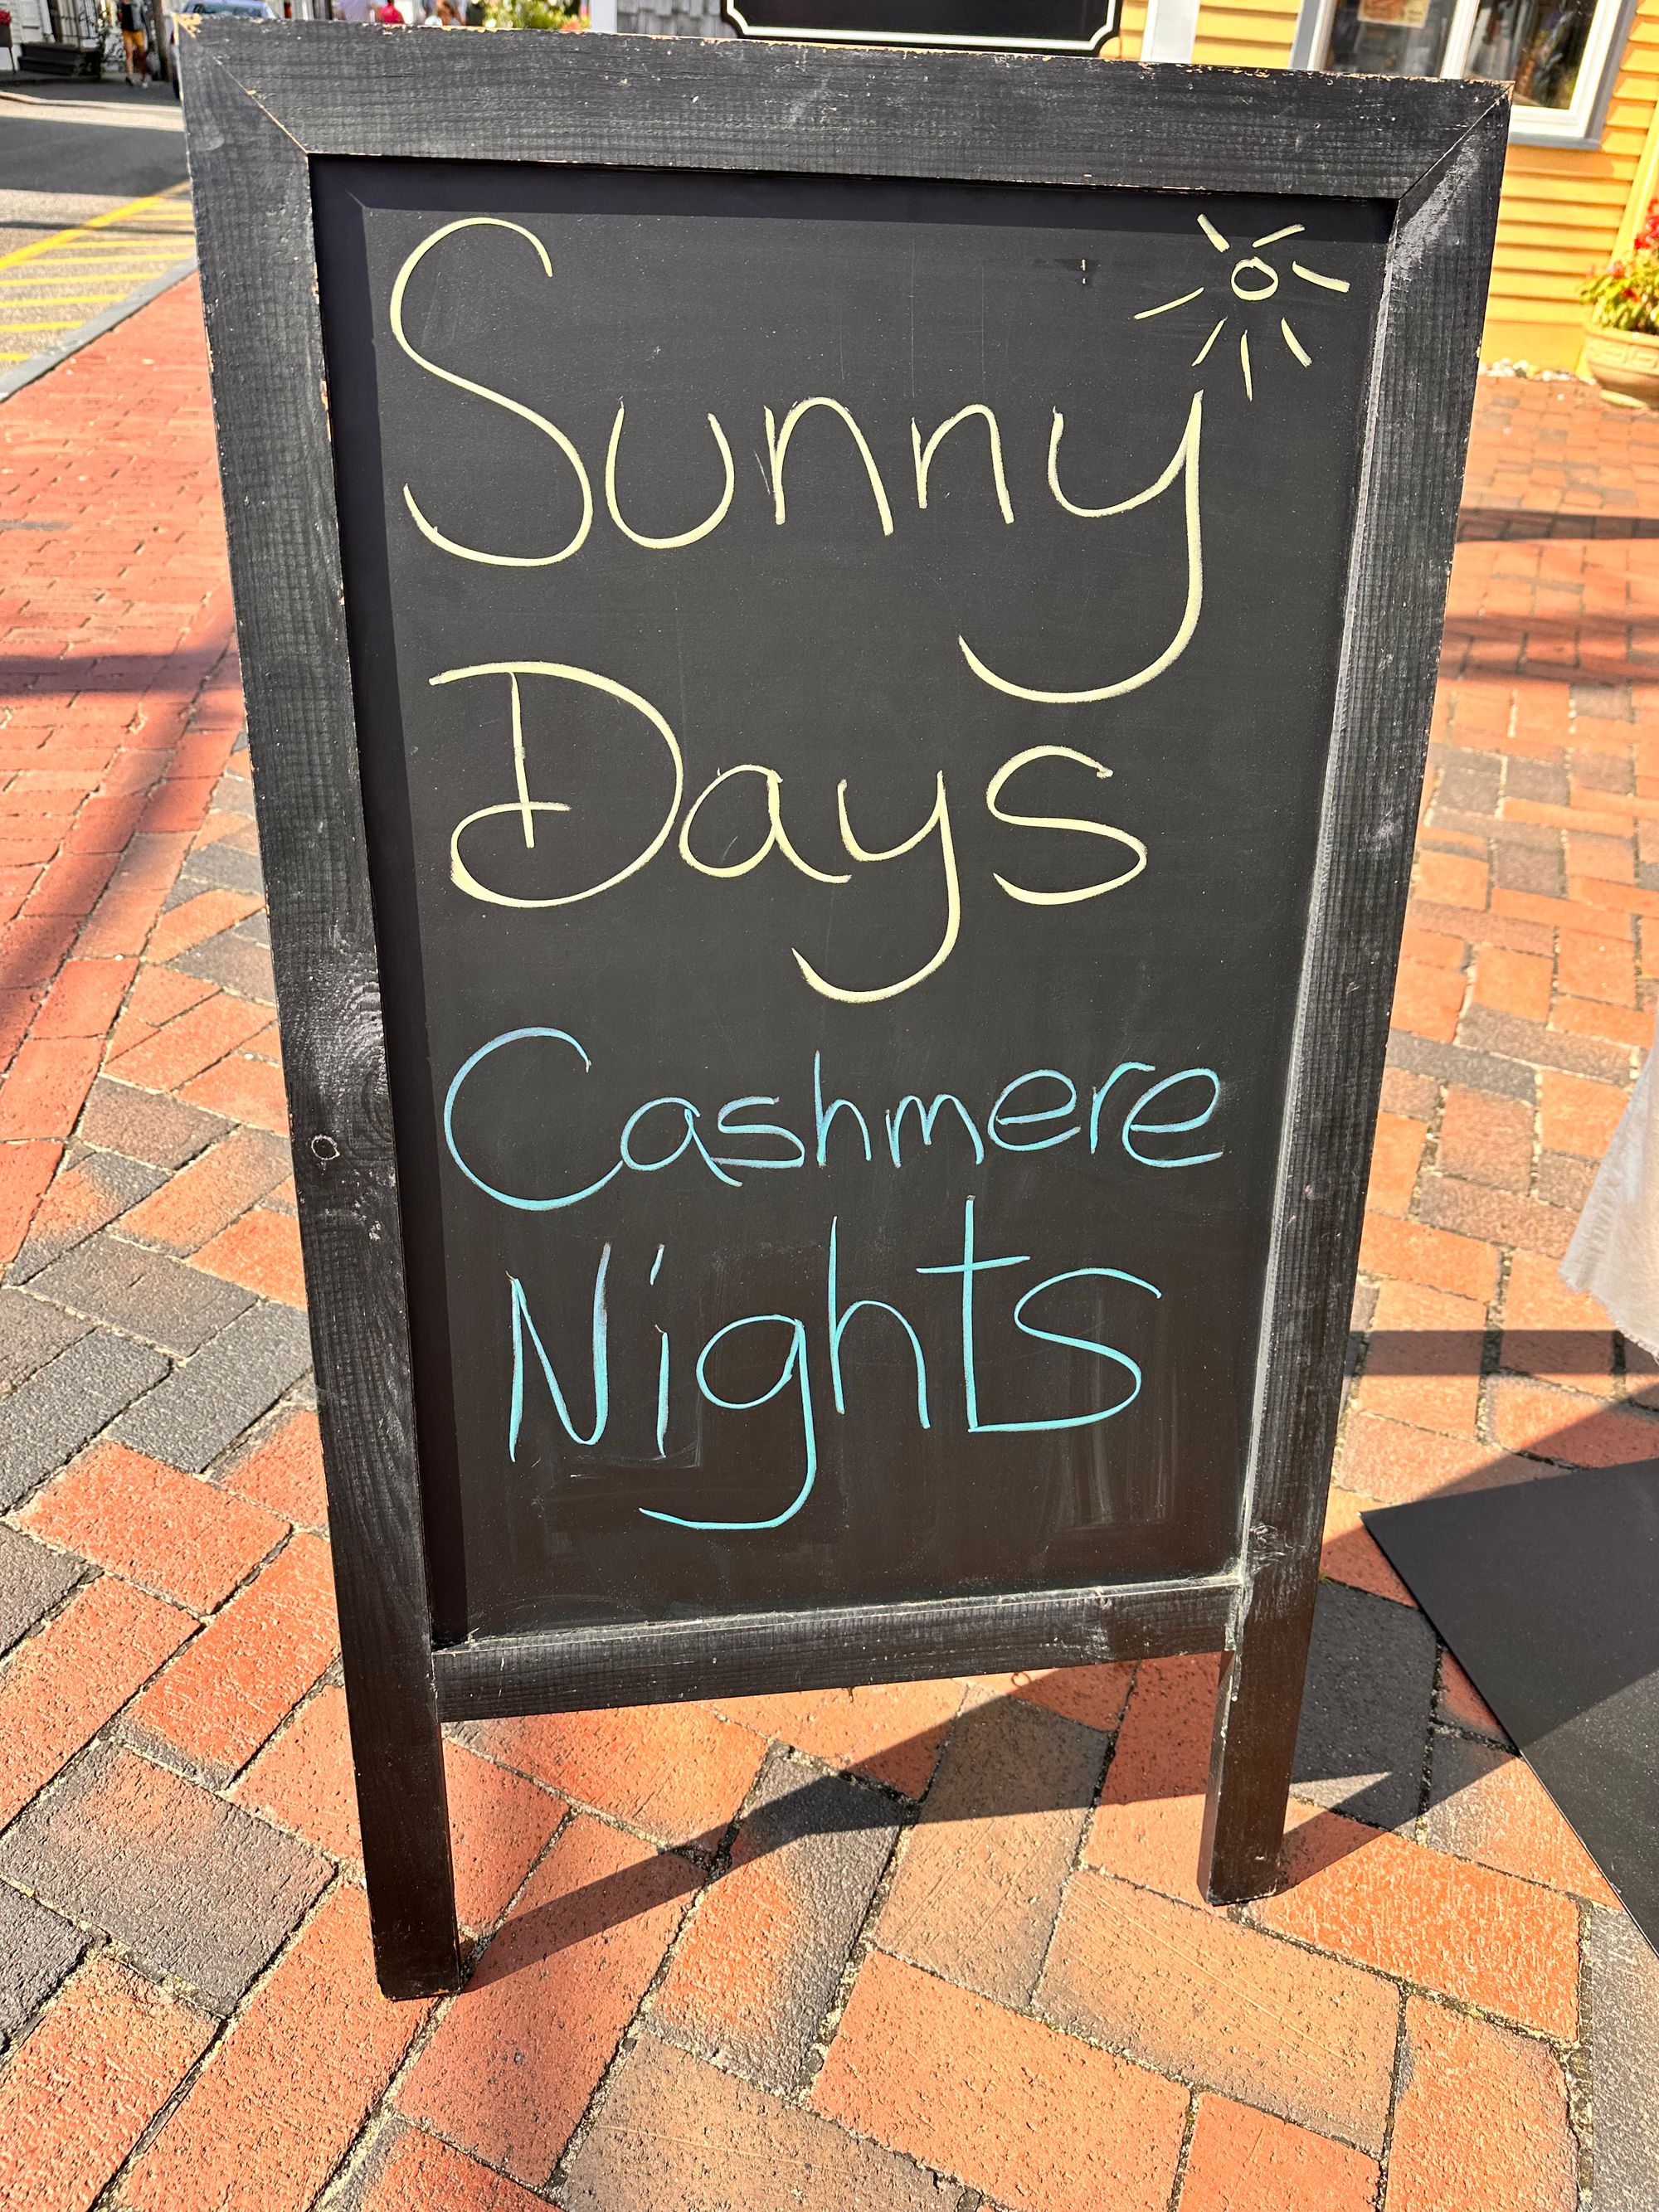 Sunny
Days
Cashmere
Nights